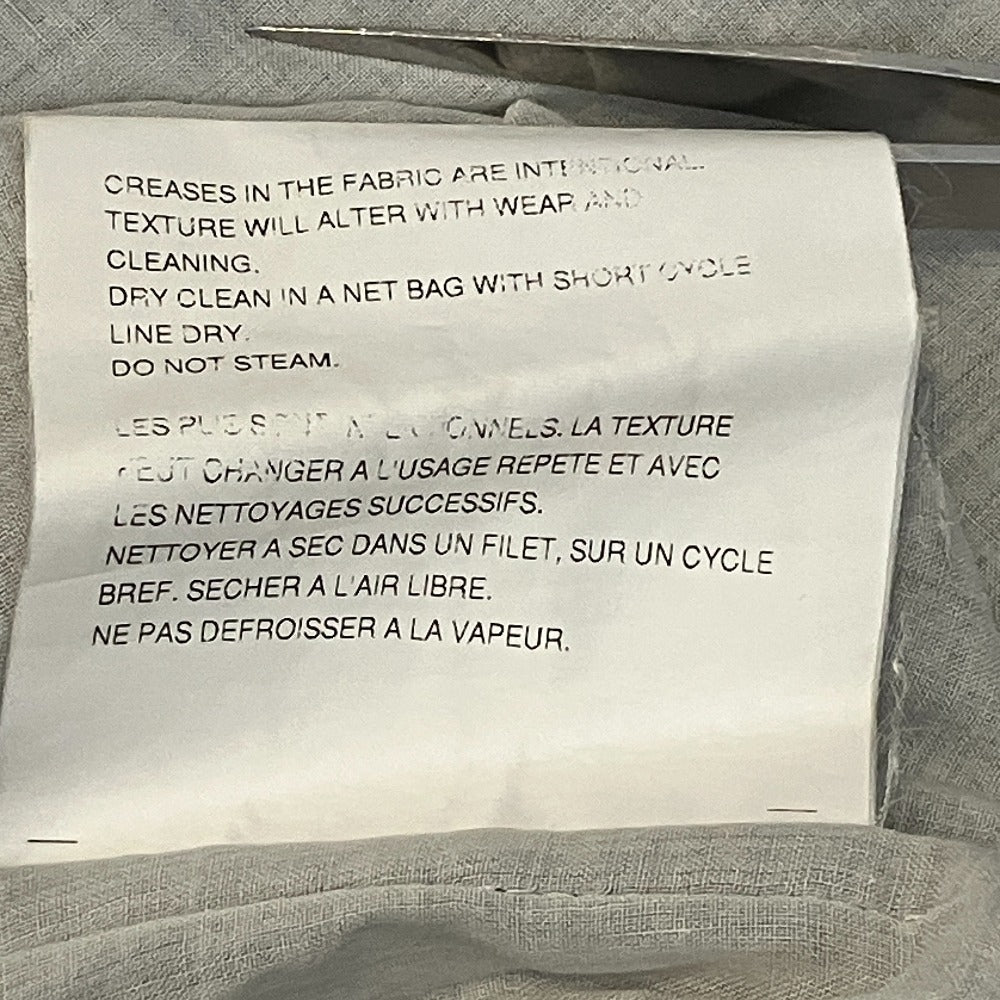 CREASES IN THE FABRIC ARE INTENTIONAL.
TEXTURE WILL ALTER WITH WEAR AND
CLEANING.
DRY CLEAN IN A NET BAG WITH SHORT CYCLE
LINE DRY.
DO NOT STEAM.
LES PLIS SONT LA TEXTURE
PEUT CHANGER A L'USAGE REPETE ET AVEC
LES NETTOYAGES SUCCESSIFS.
NETTOYER A SEC DANS UN FILET, SUR UN CYCLE
BREF. SECHER A L'AIR LIBRE.
NE PAS DEFROISSER A LA VAPEUR.